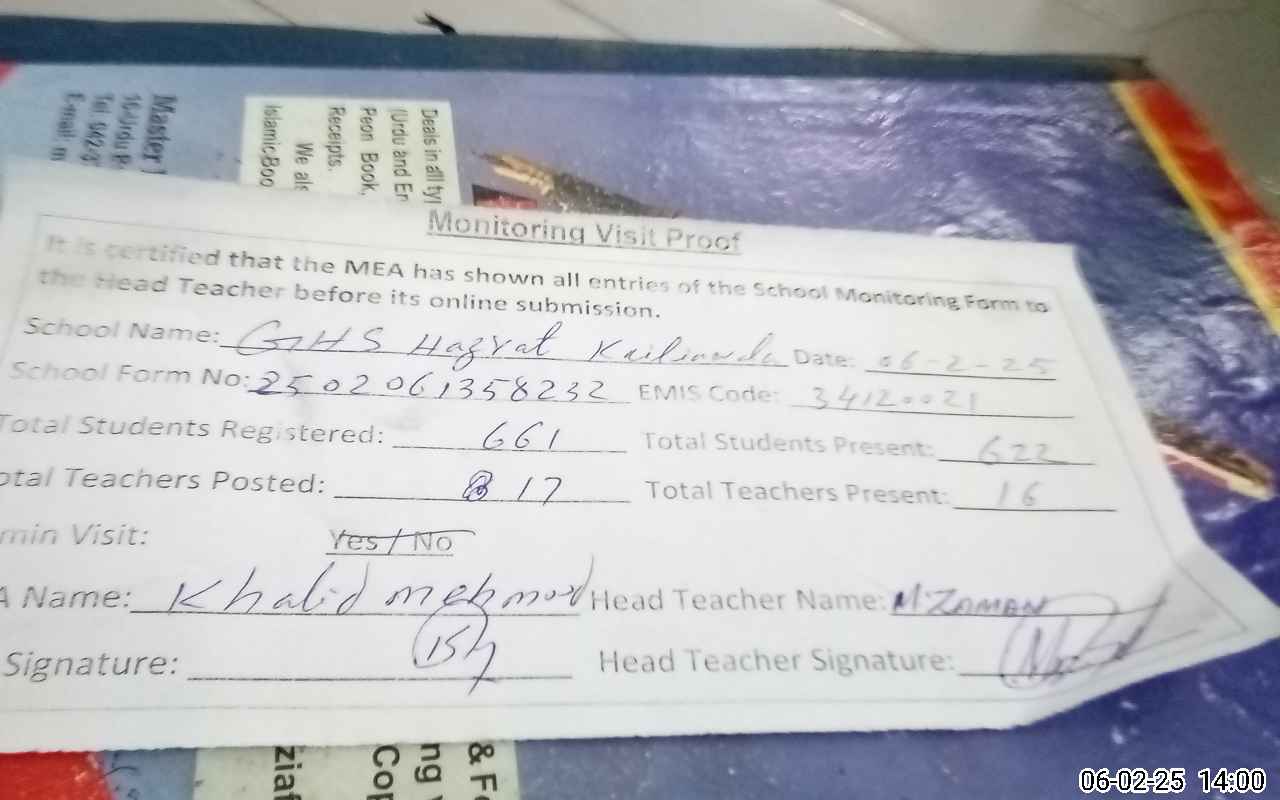 Master
16-Urdu B
Tel 042-3
E-mail: m
Deals in all typ
(Urdu and En
Peon Book,
Receipts.
We als
Islamic Boo
Monitoring Visit Proof
It is certified that the MEA has shown all entries of the School Monitoring Form to
the Head Teacher before its online submission.
School Name: GHS Hazrat Kailianwala Date: 06-2-25
School Form No: 2502061358232 EMIS Code: 34120021
Total Students Registered: 661 Total Students Present: 622
otal Teachers Posted: 17 Total Teachers Present: 16
min Visit: Yes / No
A Name: Khalid mehmood Head Teacher Name: M ZAMAN
Signature: Head Teacher Signature:
& Fo
ng
Cop
ziaf
06-02-25 14:00